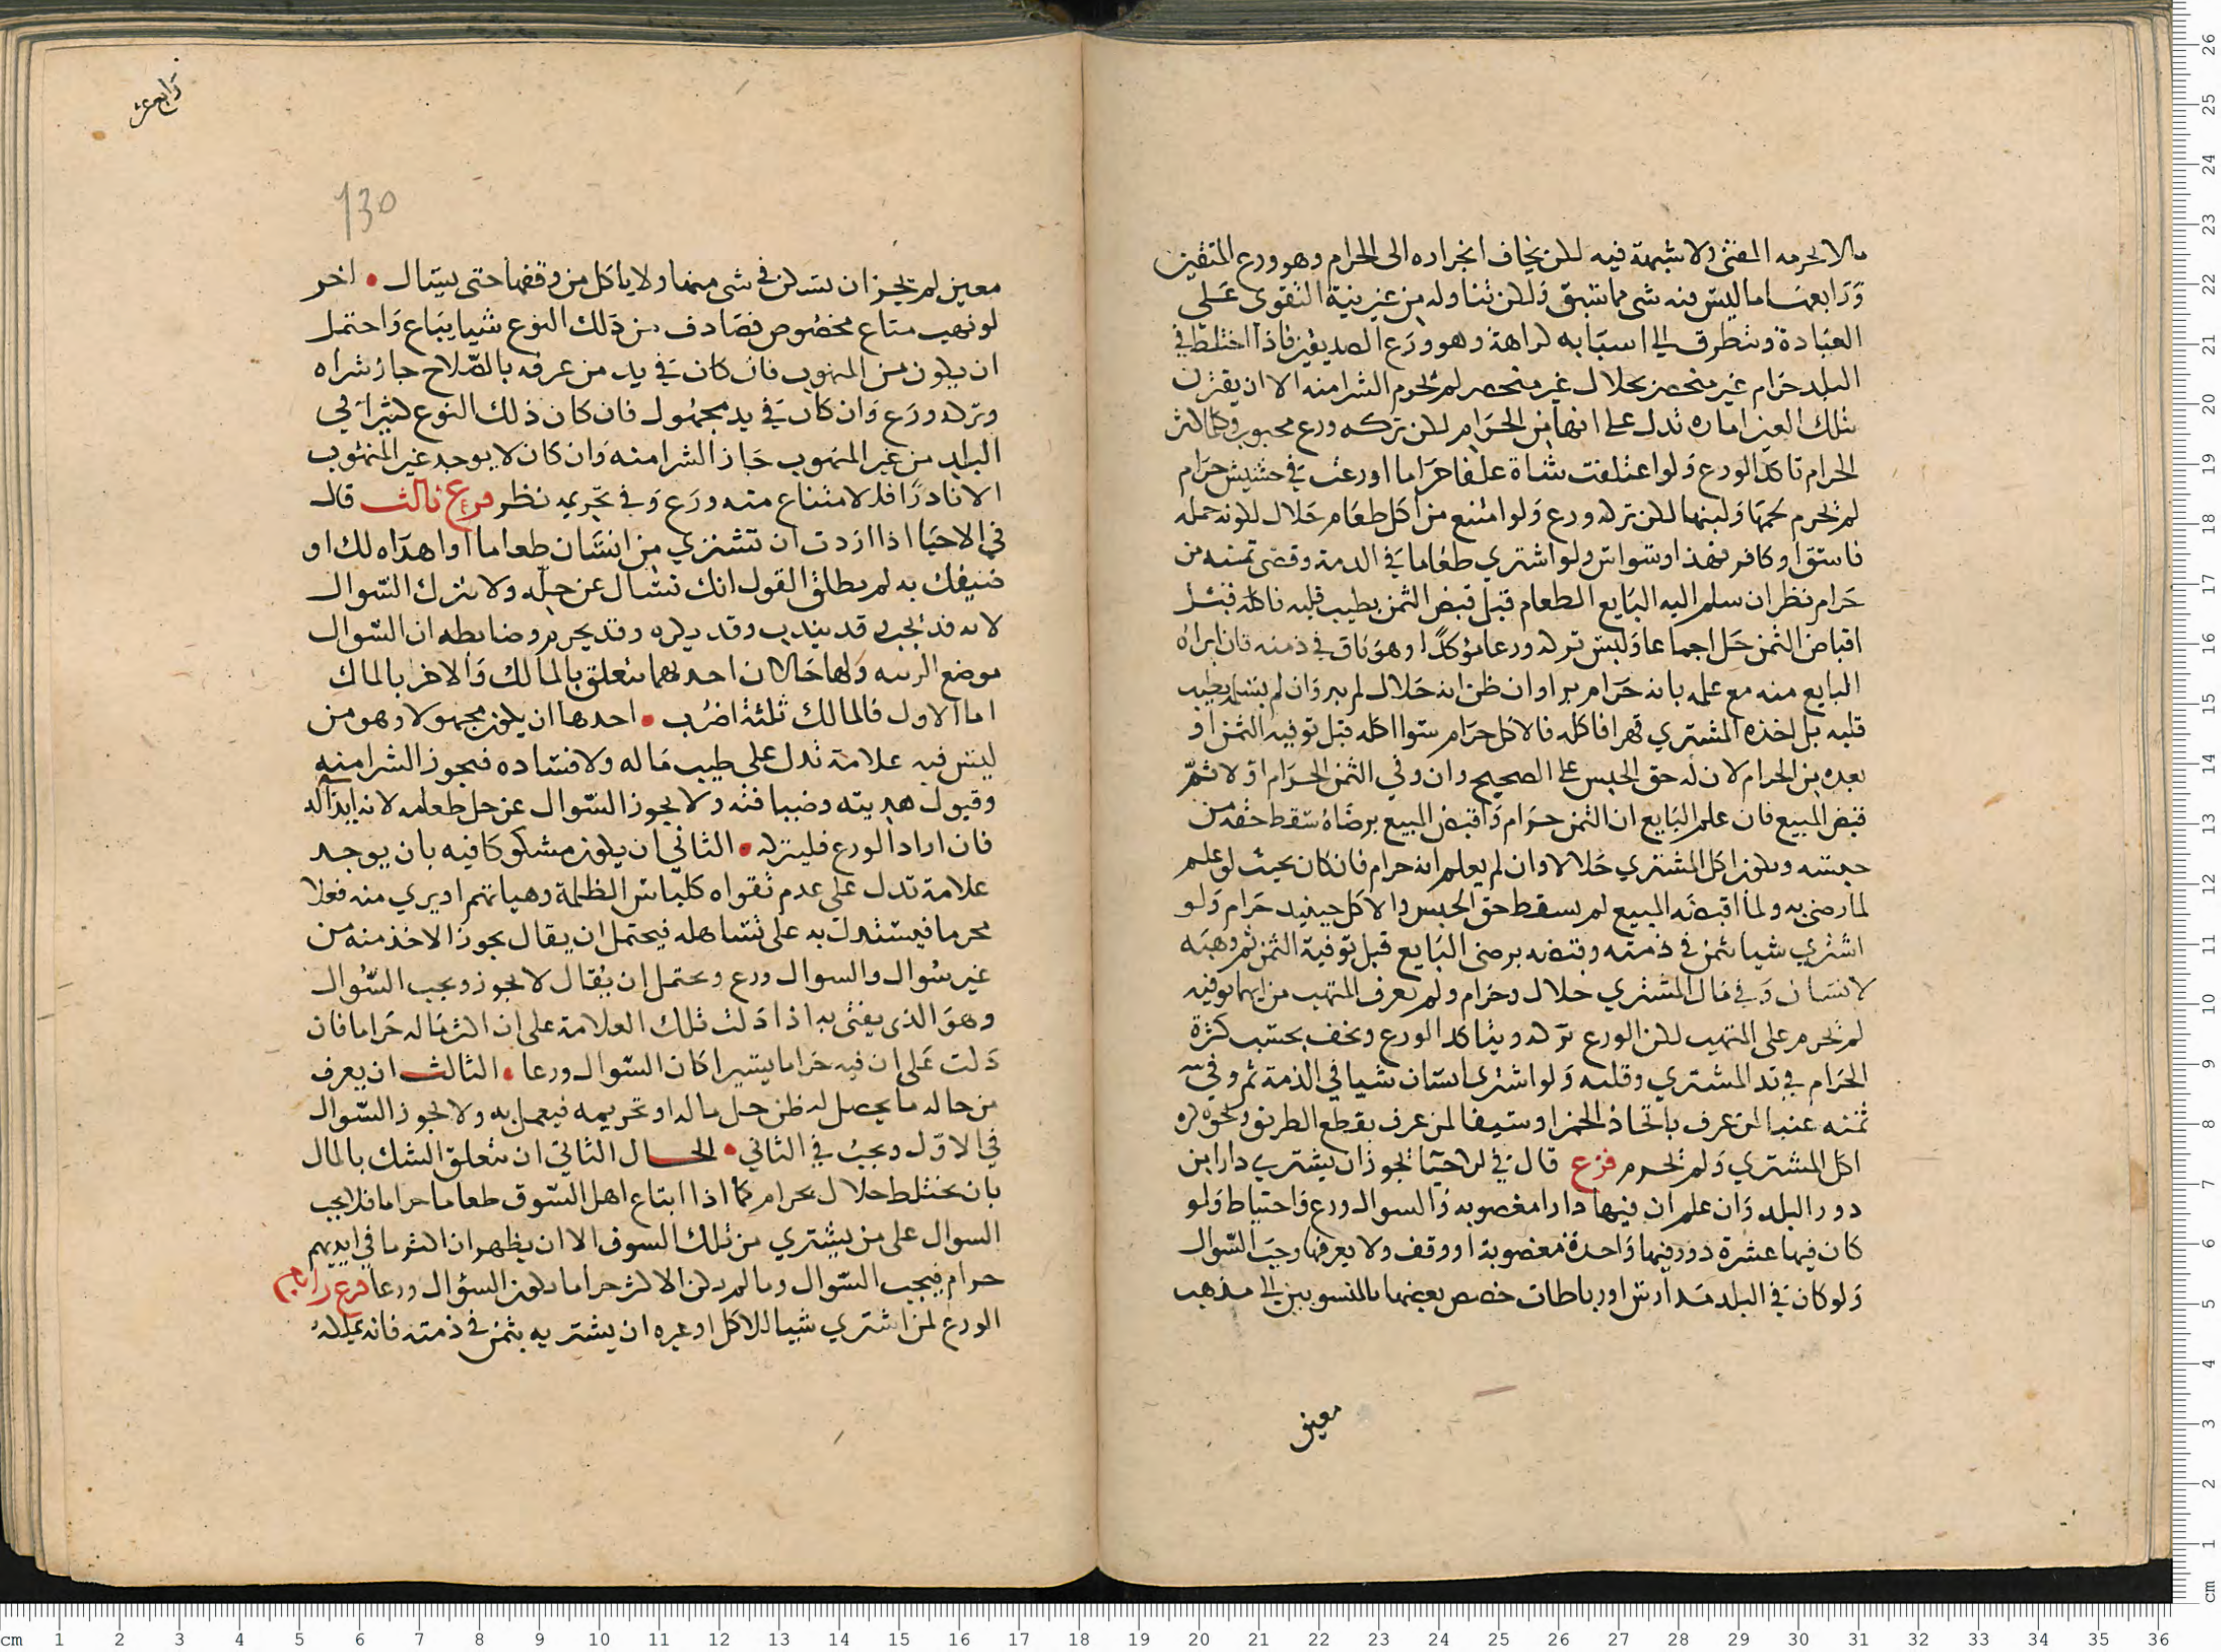 ما لا يحرمه المفتي ولا شبهة فيه لكن يخاف انجراره الى الحرام وهو ورع المتقين
وَرَابعها ما ليس فيه شي مما سبق وَلكن تناوله من غير نية التقوى عَلى
العبَادة وتتطرق الى اسبَابه كراهة وهو ورَع الصديقين فاذا اختلط في
البلد حَرام غير منحصر بحلال غير منحصر لم يحرم الشرا منه الا ان يقترن
بتلك العين اماره تدل على انها من الحرَام لكن تركه ورع محبوب وكلما كثر
الحرام تاكد الورع وَلو اعتلفت شاة علفا حرَاما او رعت في حشيش حرَام
لم يحرم لحمهَا وَلبنها لكن تركه ورع وَلو امتنع من اكل طعَام حَلال لكونه حمله
فاسق او كافر فهذا وسواس ولو اشتري طعَاما في الذمة وقضى ثمنه من
حَرام نظر ان سلم اليه البَايع الطعام قبل قبض الثمن بطيب قلبه فاكله قبل
اقباض الثمن حَل اجماعا وَليس تركه ورعا مؤكدًا وهو باق في ذمته فان ابراه
البايع منه مع علمه بانه حَرَام برا وان ظن انه حَلال لم يبر وَان لم يسلم بطيب
قلبه بل اخذه المشتري قهرا فاكله فالاكل حرَام سوا اكله قبل توفية الثمن او
بعده من الحرام لان له حق الحبس على الصحيح وان وفي الثمن الحرَام اولا ثم
قبض المبيع فان علم البَايع ان الثمن حرَام وَاقبض المبيع برضَاه سقط حقه من
حبسه ويكون اكل المشتري حَلالا وان لم يعلم انه حرام فان كان بحيث لو علم
لما رضي به ولما اقبضه المبيع لم يسقط حق الحبس والاكل حينيد حَرام وَلو
اشتري شيا بثمن في ذمته وقبضه برضى البَايع قبل توفية الثمن ثم وهبَه
لانسَان وَفي مَال المشتري حلال وحرَام ولم يعرف المتهب من ايهما يوفيه
لم يحرم على المتهب لكن الورع تركه ويتاكد الورع ويخف بحسَب كثرة
الحرَام في يد المشتري وقلته وَلو اشتري انسَان شيا في الذمة ثم وفي
ثمنه عنبا لمن عرف باتخاذ الخمر او سَيفا لمن عرف بقطع الطريق ونحوه كره
اكل المشتري وَلم يحرم فرع قال في الاحيَا يجوز ان يشتري دارا من
دور البلد وَان علم ان فيها دارا مغصوبه وَالسوال ورع وَاحتياط وَلو
كان فيها عشرة دور فيها وَاحدة مغصوبة او وقف ولا يعرفها وجبَ السّوال
وَلو كان في البلد مَدارس او رباطات خصص بعضها بالمنسوبين الى مذهب
معين
رابع عشر
130
معين لم يجز ان يسكن في شي منها ولا ياكل من وقفها حتى يسال • اخر
لو نهب متاع مخصُوص فصَادف من ذلك النوع شيا يبَاع وَاحتمل
ان يكون من المنهوب فان كان في يد من عرفه بالصّلاح جاز شراه
وتركه ورَع وَان كان في يد مجهول فان كان ذلك النوع كثيرا في
البلد من غير المنهوب جَاز الشرا منه وَان كان لا يوجد غير المنهوب
الا نادرًا فالامتناع منه ورَع وَفي تحريمه نظر فرع ثالث قال
في الاحيَا اذا اردت ان تشتري من انسَان طعاما او اهدَاه لك او
ضيفك به لم يطلق القول انك تسال عن حلّه ولا بترك السّوال
لانه قد يجب وقد يندب وقد يكره وقد يحرم وضابطه ان السّوال
موضع الريبه وَلها حَالان احدهما يتعلق بالمَالك وَالاخر بالمال
اما الاول فالمالك ثلثة اضرُب • احدها ان يكون مجهولا وهو من
ليس فيه علامة تدل على طيب مَاله ولا فساده فيجوز الشرا منه
وقبول هديته وضيافته ولا يجوز السّوال عن حل طعامه لانه ايذاله
فان اراد الورع فليتركه • الثاني ان يكون مشكوكا فيه بان يوجد
علامة تدل على عدم تقواه كلباس الظلمة وهياتهم او يري منه فعلا
محرما فيستدل به على تساهله فيحتمل ان يقال يجوز الاخذ منه من
غير سُوال والسوال ورع ويحتمل ان يُقال لا يجوز ويجب السّوال
وهوَ الذي يفتى به اذا دَلت تلك العلامة على ان اكثر مَاله حَراما فان
دَلت عَلى ان فيه حرَاما يسيرا كان السّوال ورعا • الثالث ان يعرف
من حاله ما يحصل له ظن حل ماله او تحريمه فيعمل به ولا يجوز السّوال
في الاوّل ويجبُ في الثاني • الحال الثاني ان يتعلق الشك بالمال
بان يختلط حلال بحرام كما اذا ابتاع اهل السّوق طعاما حراما فلا يجب
السوال على من يشتري من تلك السوق الا ان يظهر ان اكثر ما في ايديهم
حرام فيجب السّوال وما لم يكن الاكثر حراما يكون السؤال ورعا فرع رابع
الورع لمن اشتري شيا للاكل او غيره ان يشتريه بثمن في ذمته فانه يملكه